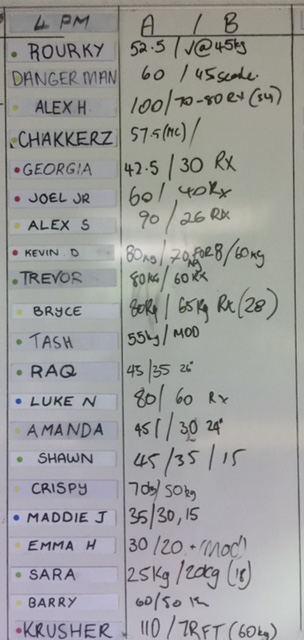 4 PM A / B
ROURKY 52.5 / √@45kg
DANGERMAN 60 / 45 scale.
ALEX H 100/70-80 RX (34)
CHAKKERZ 57.5 (MC) /
GEORGIA 42.5 / 30 RX
JOEL JR 60 / 40 Rx
ALEX S 90 / 26 RX
KEVIN D 80kg / 70kg FOR 8/60kg
TREVOR 80KG / 60 RX
BRYCE 80Kg / 65Kg RX (28)
TASH 55kg / MOD
RAQ 45/35 26"
LUKE N 80/ 60 Rx
AMANDA 45 / 30 24"
SHAWN 45 /35 / 15
CRISPY 70kg/50kg
MADDIE J 35/30, 15
EMMA H 30/20 + (Mod)
SARA 25Kg / 20kg (18)
BARRY 60/50
KRUSHER 110 / 7RFT (60kg)